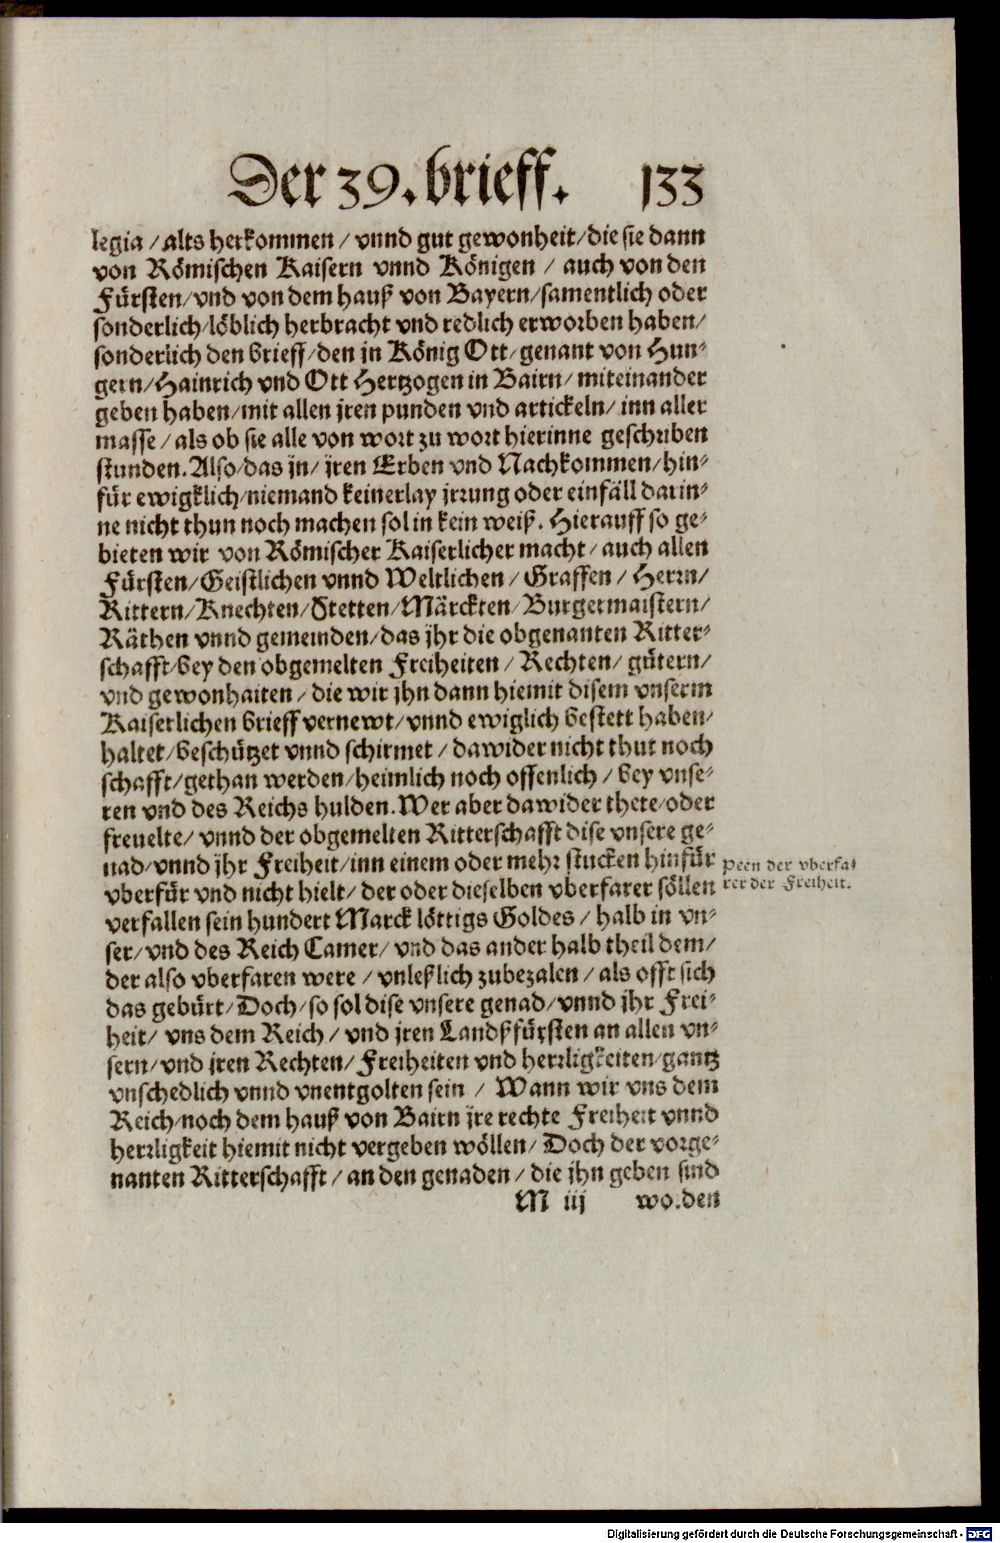 Der 39. brieff. 133
legia / alts herkommen / vnnd gut gewonheit / die sie dann
von Römischen Kaisern vnnd Königen / auch von den
Fürsten / vnd von dem hauß von Bayern / samentlich oder
sonderlich / löblich herbracht vnd redlich erworben haben /
sonderlich den brieff / den jn König Ott / genant von Hun-
gern / Hainrich vnd Ott Hertzogen in Bairn / miteinander
geben haben / mit allen jren punden vnd artickeln / inn aller
masse / als ob sie alle von wort zu wort hierinne geschriben
stunden. Also / das jn / jren Erben vnd Nachkommen / hin-
für ewigklich / niemand keinerlay jrrung oder einfäll darin-
ne nicht thun noch machen sol in kein weiß. Hierauff so ge-
bieten wir von Römischer Kaiserlicher macht / auch allen
Fürsten / Geistlichen vnnd Weltlichen / Graffen / Herrn /
Rittern / Knechten / Stetten / Märckten / Burgermaistern /
Räthen vnnd gemeinden / das jhr die obgenanten Ritter-
schafft / bey den obgemelten Freiheiten / Rechten / gütern /
vnd gewonhaiten / die wir jhn dann hiemit disem vnserm
Kaiserlichen brieff vernewt / vnnd ewiglich bestett haben /
haltet / beschützet vnnd schirmet / dawider nicht thut noch
schafft / gethan werden / heimlich noch offenlich / bey vnse-
ren vnd des Reichs hulden. Wer aber dawider thete / oder
freuelte / vnnd der obgemelten Ritterschafft dise vnsere ge-
nad / vnnd jhr Freiheit / inn einem oder mehr stucken hinfür
vberfür vnd nicht hielt / der oder dieselben vberfarer söllen
verfallen sein hundert Marck löttigs Goldes / halb in vn-
ser / vnd des Reich Camer / vnd das ander halb theil dem /
der also vberfaren were / vnleßlich zubezalen / als offt sich
das gebürt / Doch / so sol dise vnsere genad / vnnd jhr Frei-
heit / vns dem Reich / vnd jren Landßfürsten an allen vn-
sern / vnd jren Rechten / Freiheiten vnd herrligkeiten / gantz
vnschedlich vnnd vnentgolten sein / Wann wir vns dem
Reich / noch dem hauß von Bairn jre rechte Freiheit vnnd
herrligkeit hiemit nicht vergeben wöllen / Doch der vorge-
nanten Ritterschafft / an den genaden / die jhn geben sind
M iij worden
Peen der vberfa-
rer der Freiheit.
Digitalisierung gefördert durch die Deutsche Forschungsgemeinschaft - DFG